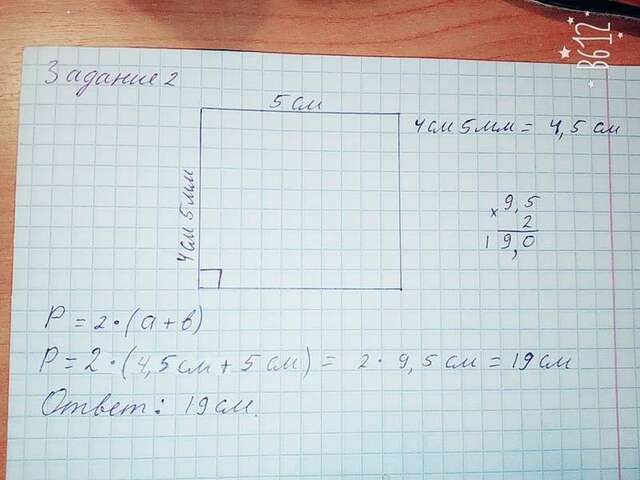 B612
Задание 2
5 см
4 см 5 мм = 4,5 см
4 см 5 мм
9,5
× 2
19,0
P = 2 · (a + b)
P = 2 · (4,5 см + 5 см) = 2 · 9,5 см = 19 см
Ответ: 19 см.